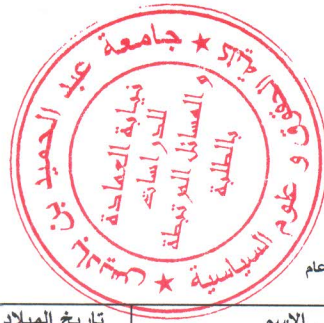 جامعة عبد الحميد بن باديس ★
كلية الحقوق و علوم السياسية ★
نيابة العمادة
للدراسات
و المسائل المرتبطة
بالطلبة
عام
الاسم
تاريخ الميلاد